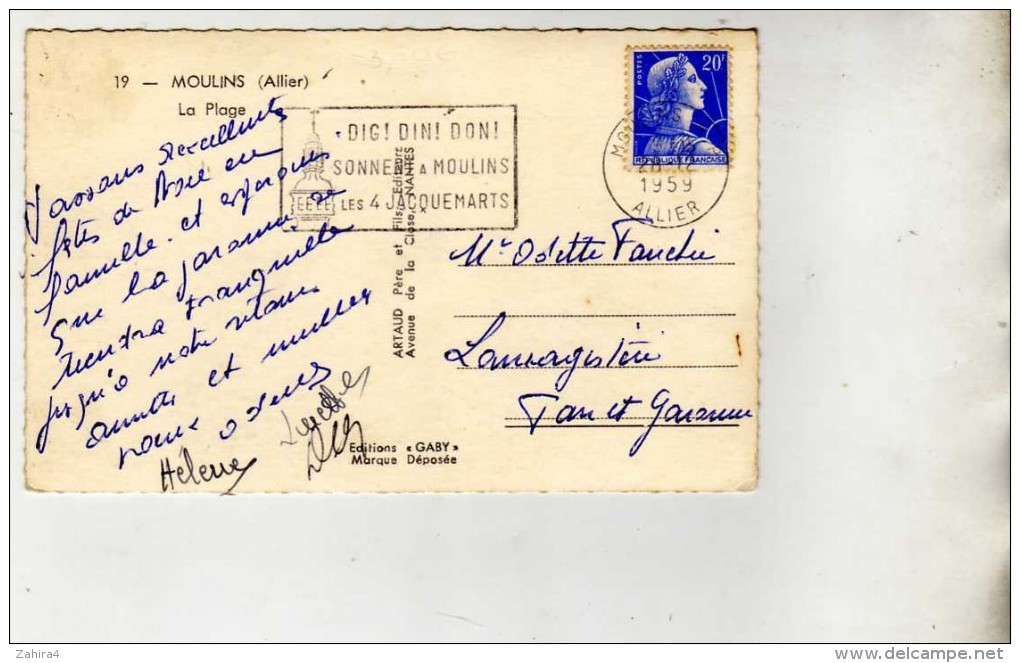 19 — MOULINS (Allier)
La Plage
DIG! DIN! DON!
SONNENT A MOULINS
LES 4 JACQUEMARTS
POSTES
20F
REPUBLIQUE FRANÇAISE
MOULINS
1959
ALLIER
Passons excellentes
fêtes de Noël en
famille. et espérons
que la garonne se
tiendra tranquille
jusqu'à notre retour.
amitiés et meilleurs
Hélène
ARTAUD Père et Fils, Editeurs
Avenue de la Close, NANTES
Editions « GABY »
Marque Déposée
Odette
Lamagistère
Tarn et Garonne
Zahira4
www.delcampe.net